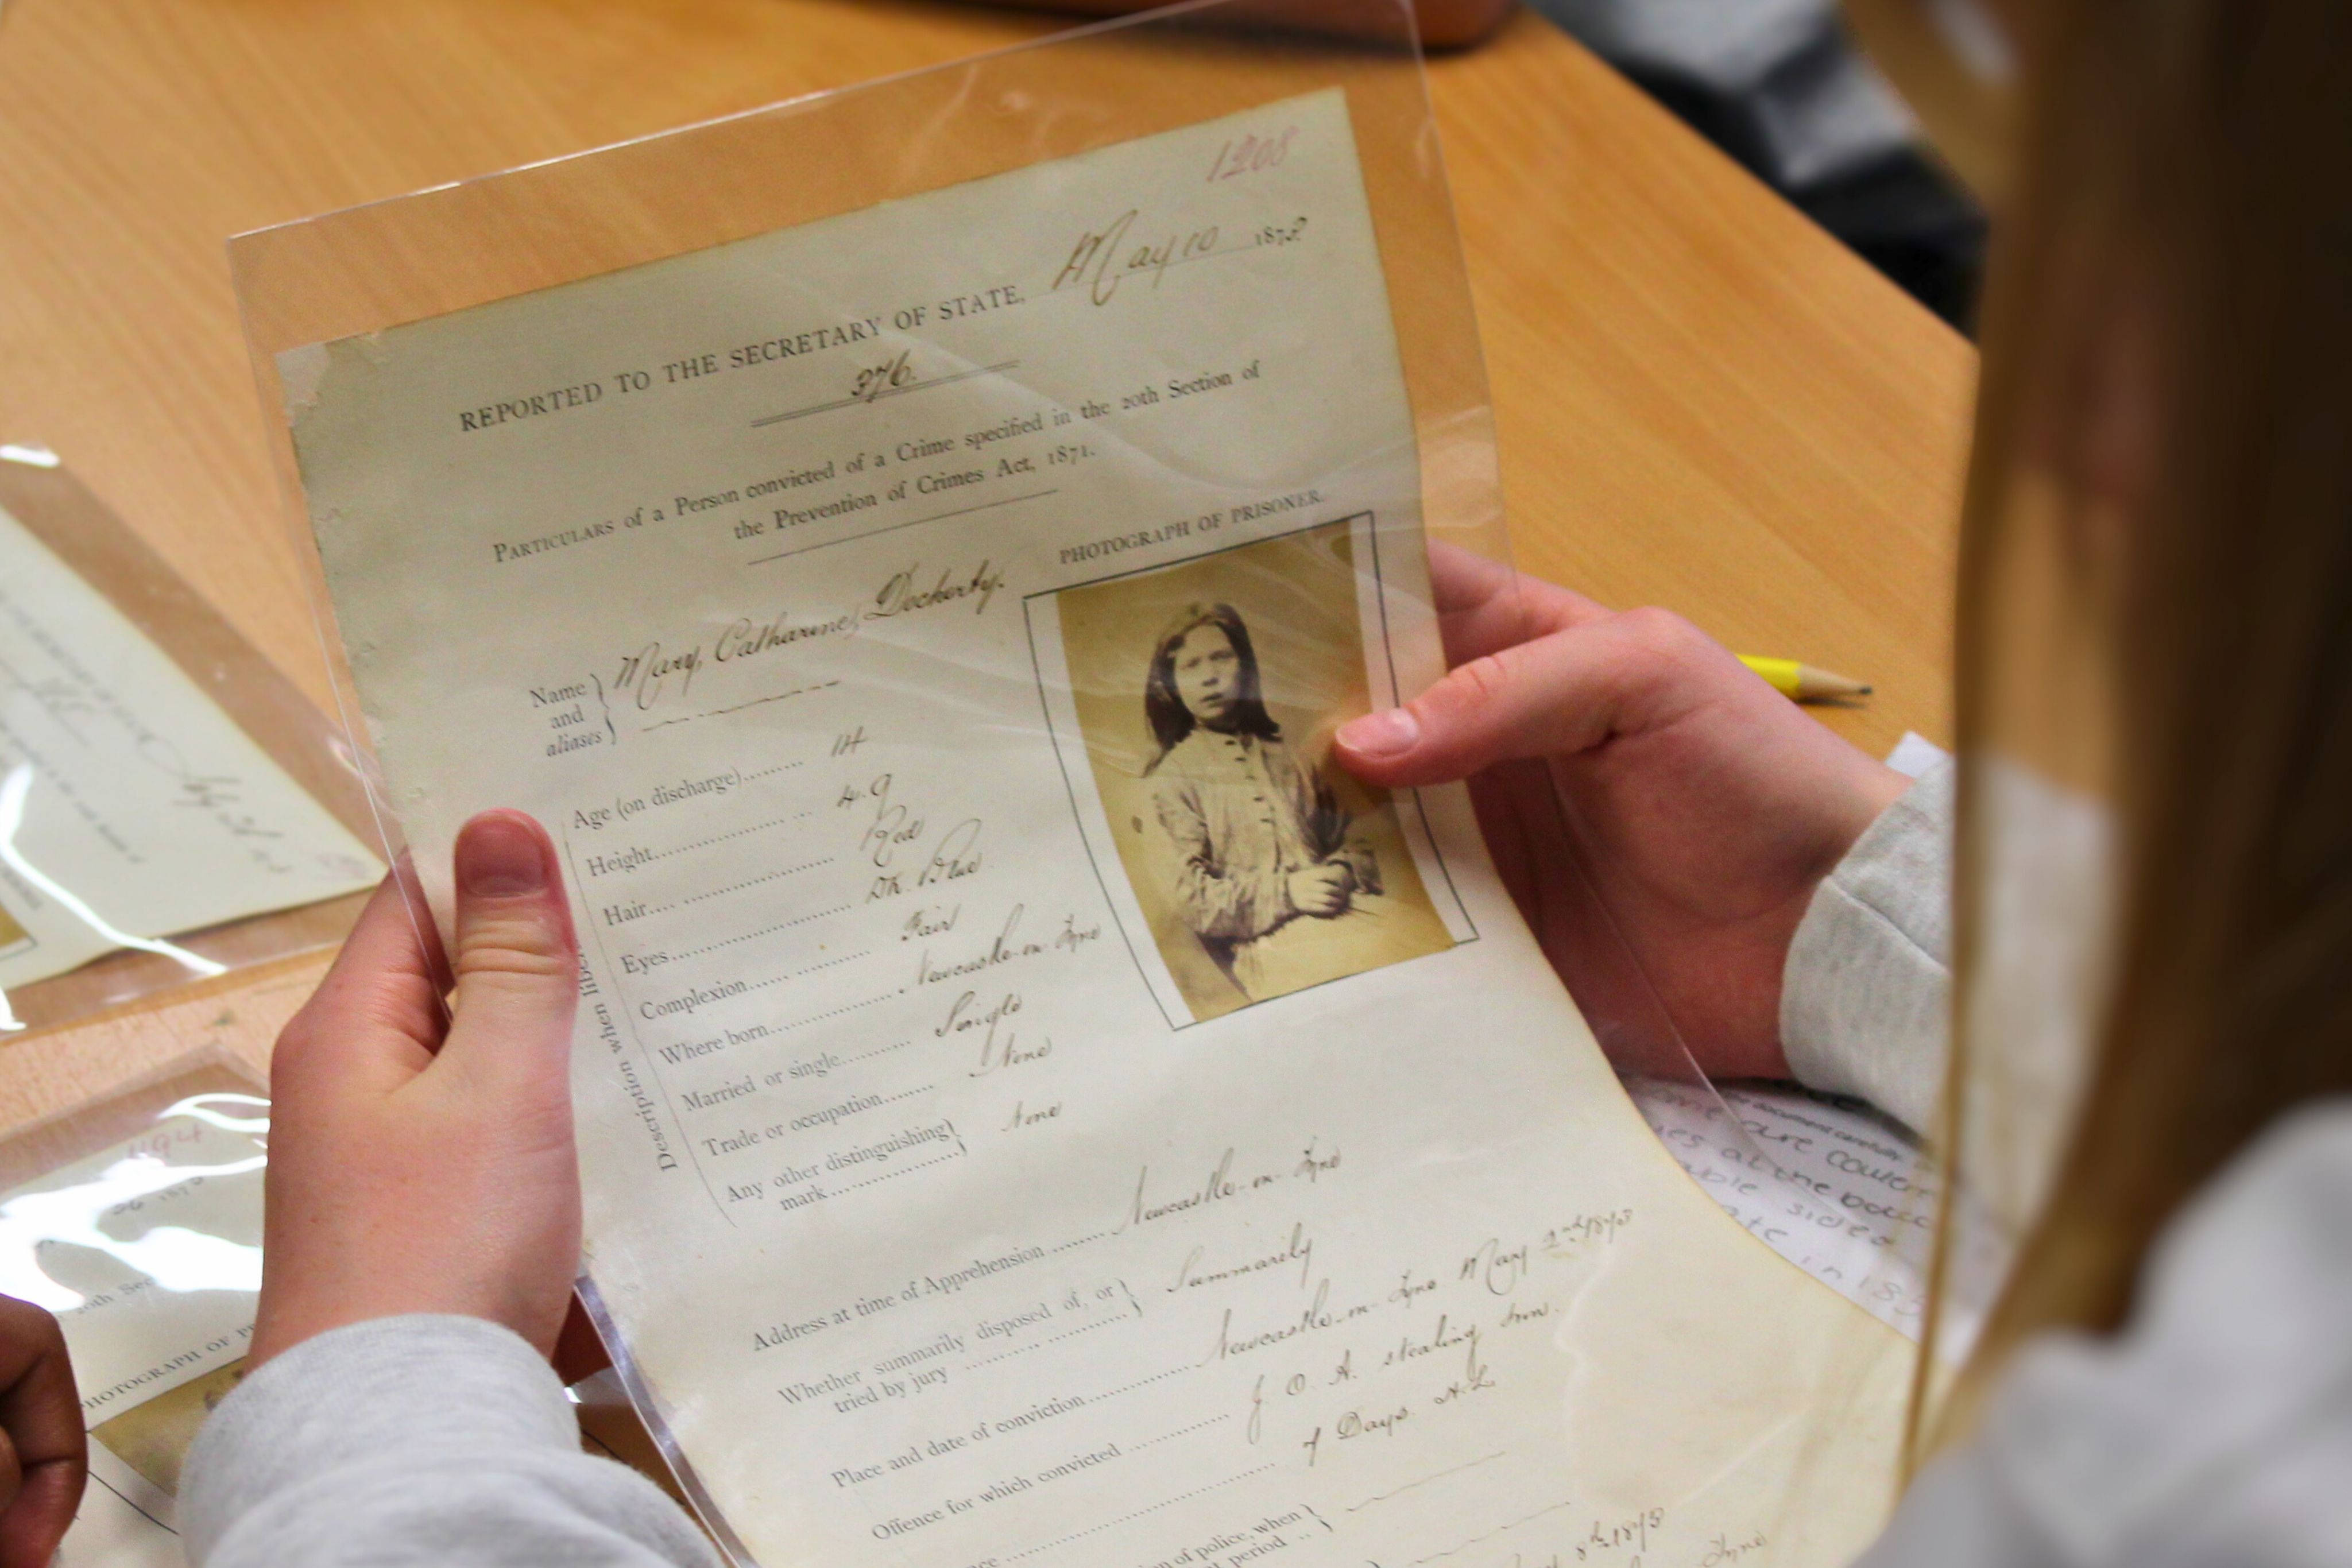 1208
REPORTED TO THE SECRETARY OF STATE, May 10 1873
376.
PARTICULARS of a Person convicted of a Crime specified in the 20th Section of
the Prevention of Crimes Act, 1871.
PHOTOGRAPH OF PRISONER.
Name and aliases } Mary, Catharine, Docherty.
Description when liber
Age (on discharge)......... 14
Height.................... 4.9
Hair.... .................. Red
Eyes...................... Dk. Blue
Complexion...... .......... Fair
Where born............... Newcastle-on-Tyne
Married or single.......... Single
Trade or occupation....... None
Any other distinguishing mark } None
Address at time of Apprehension ........ Newcastle-on-Tyne
Whether summarily disposed of, or tried by jury } Summarily
Place and date of conviction............ Newcastle-on-Tyne May 2nd 1873
Offence for which convicted ............ J. O. A. stealing iron.
7 Days H.L.
of police, when
period
8th 1873
Tyne
PHOTOGRAPH OF